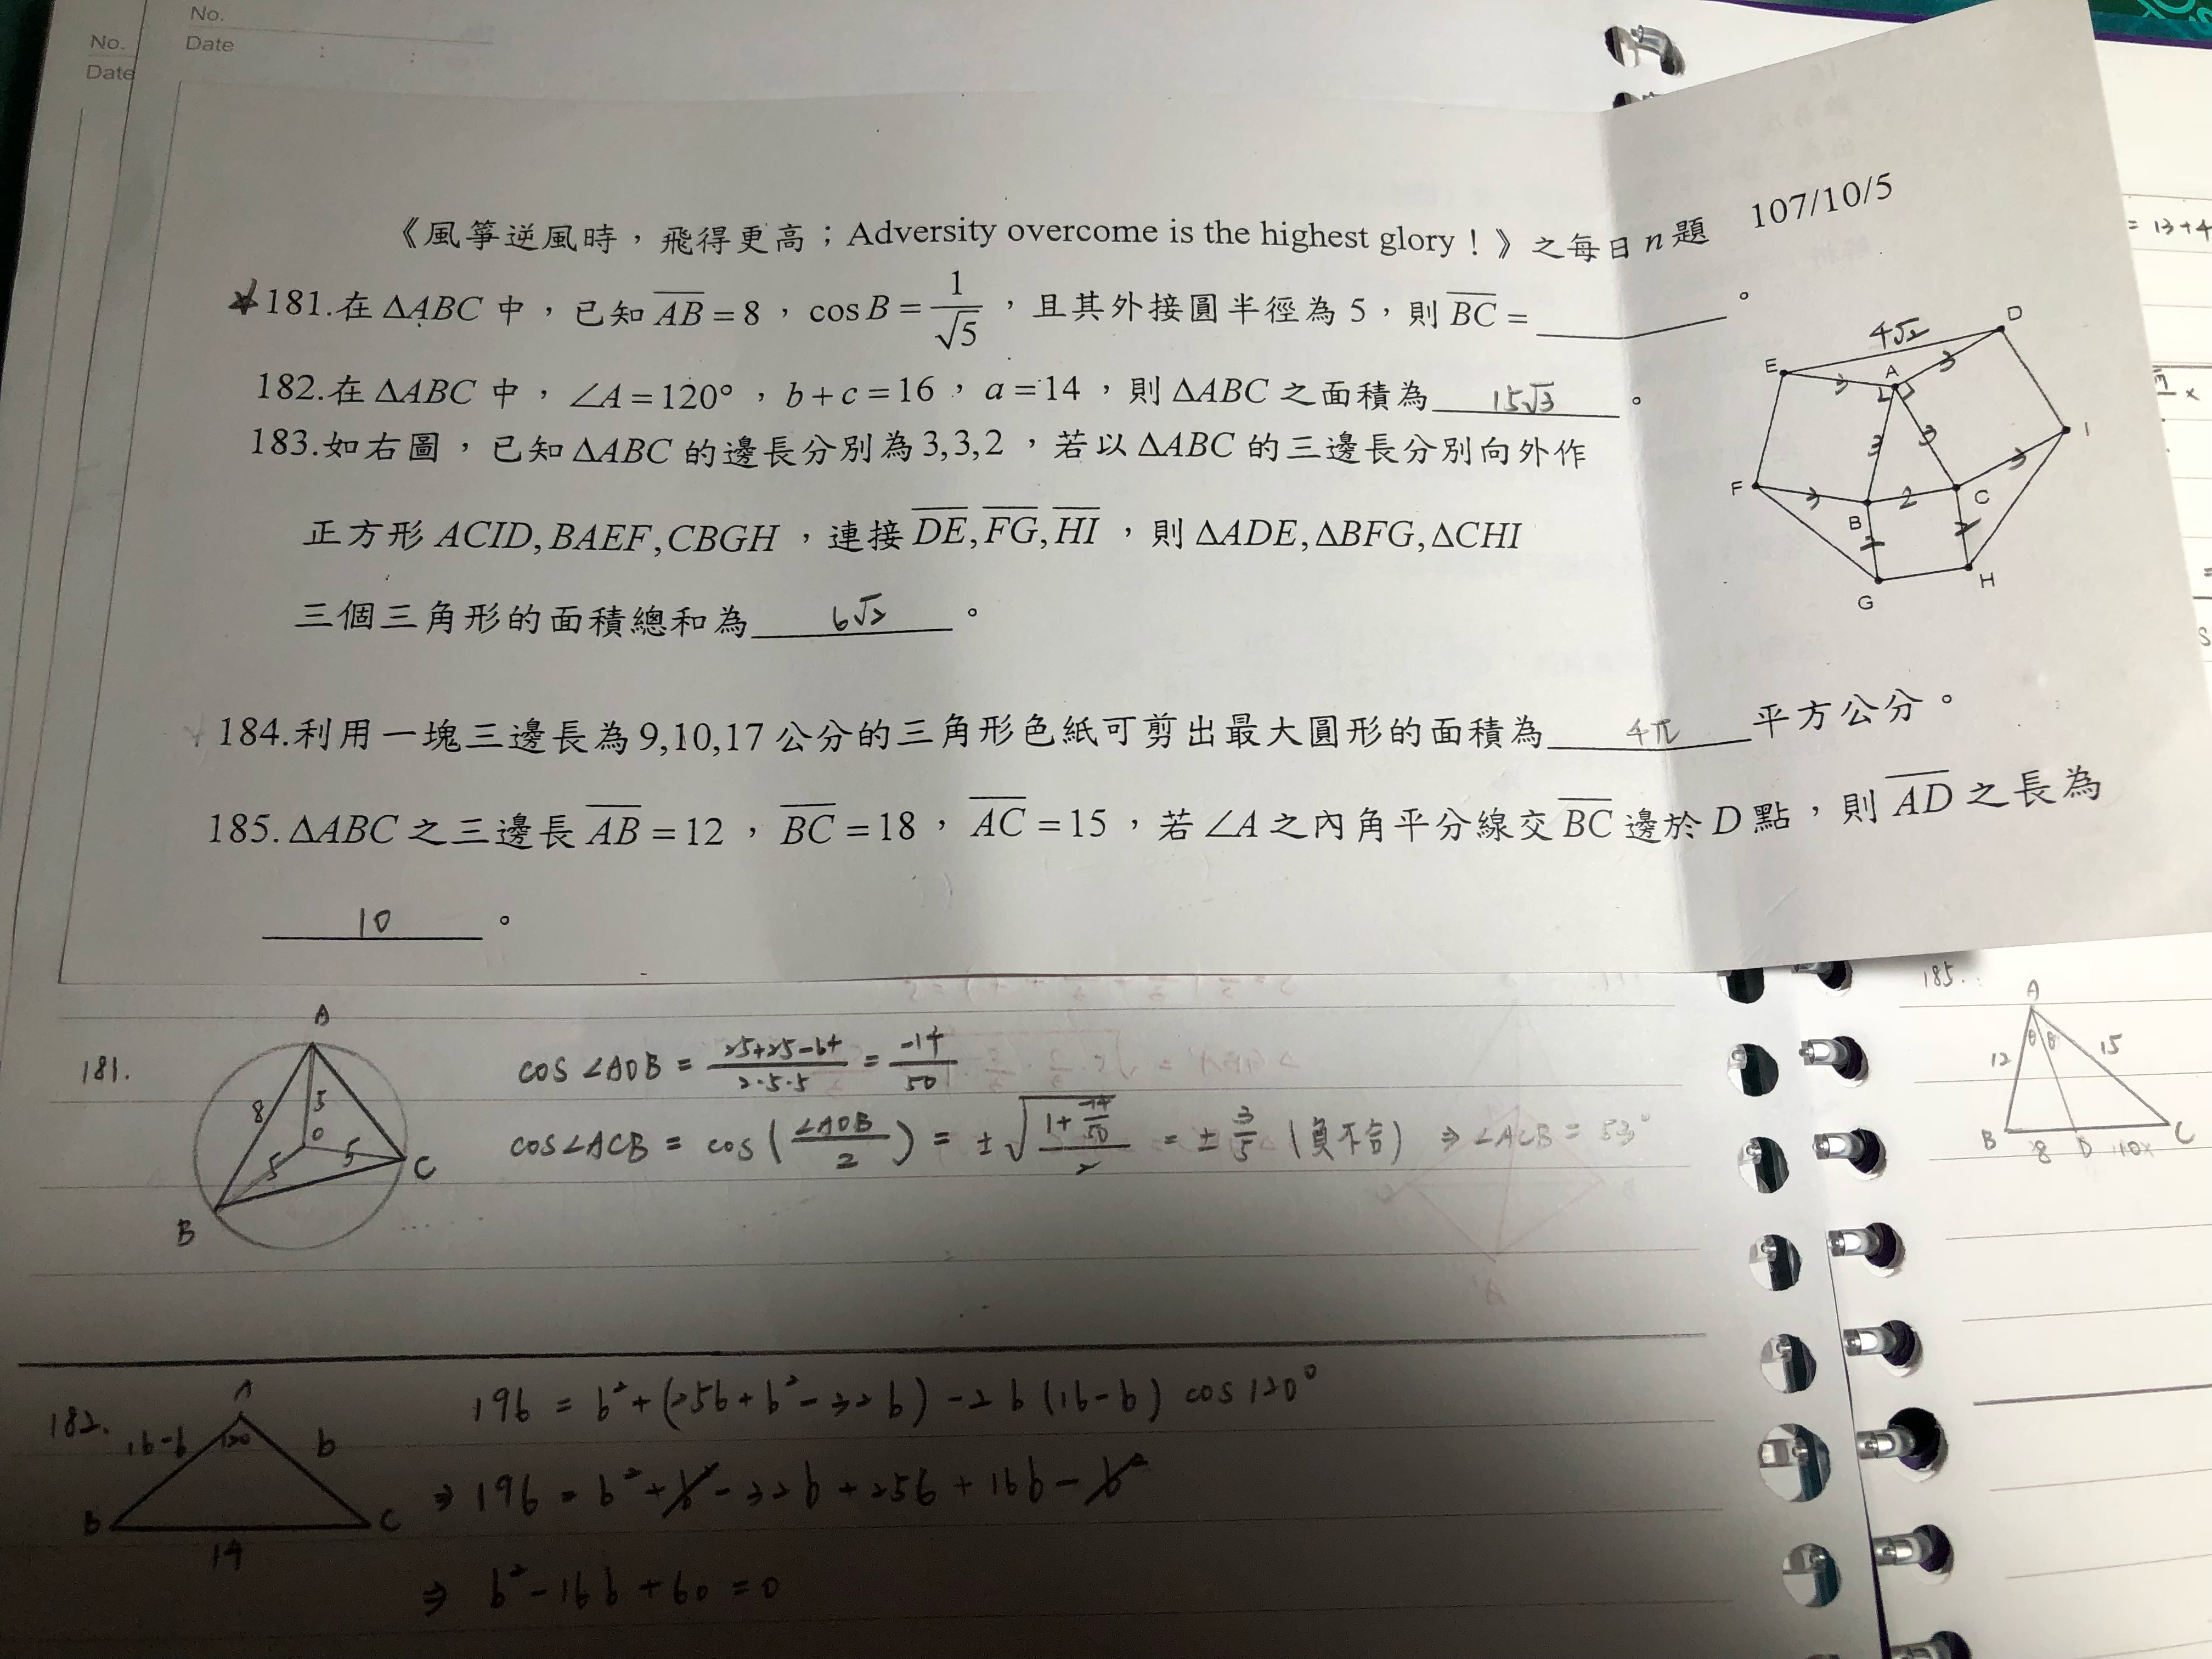 No.
Date
No.
Date : :
《風箏逆風時，飛得更高；Adversity overcome is the highest glory！》之每日 n 題 107/10/5
181.在 ΔABC 中，已知 \overline{AB} = 8，cos B = \frac{1}{\sqrt{5}}，且其外接圓半徑為 5，則 \overline{BC} = ________。
182.在 ΔABC 中，∠A = 120°，b + c = 16，a = 14，則 ΔABC 之面積為 15√3 。
183.如右圖，已知 ΔABC 的邊長分別為 3,3,2，若以 ΔABC 的三邊長分別向外作
正方形 ACID, BAEF, CBGH，連接 \overline{DE}, \overline{FG}, \overline{HI}，則 ΔADE, ΔBFG, ΔCHI
三個三角形的面積總和為 6√2 。
D
4√2
E
A
3
3
I
3
3
3
F
3
B
2
C
2
2
G
H
184.利用一塊三邊長為 9,10,17 公分的三角形色紙可剪出最大圓形的面積為 4π 平方公分。
185. ΔABC 之三邊長 \overline{AB} = 12，\overline{BC} = 18，\overline{AC} = 15，若 ∠A 之內角平分線交 \overline{BC} 邊於 D 點，則 \overline{AD} 之長為
10 。
181.
A
8
5
O
5
5
B
C
cos∠AOB = \frac{25+25-64}{2·5·5} = \frac{-14}{50}
cos∠ACB = cos(\frac{∠AOB}{2}) = ±\sqrt{\frac{1+\frac{-14}{50}}{2}} = ±\frac{3}{5} (負不合) ⇒ ∠ACB = 53°
182.
A
16-b
120
b
B
C
14
196 = b²+(256+b²-32b) -2b(16-b) cos120°
⇒ 196 = b²+b²-32b+256+16b-b²
⇒ b²-16b+60=0
185.
A
θ θ
12
15
B
8
D
10
C
= 13+4